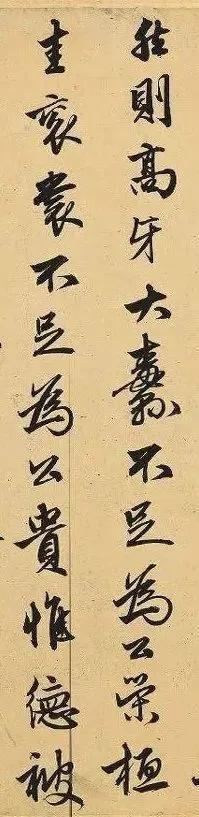 然則高牙大纛不足為公榮桓
圭袞裳不足為公貴惟德被